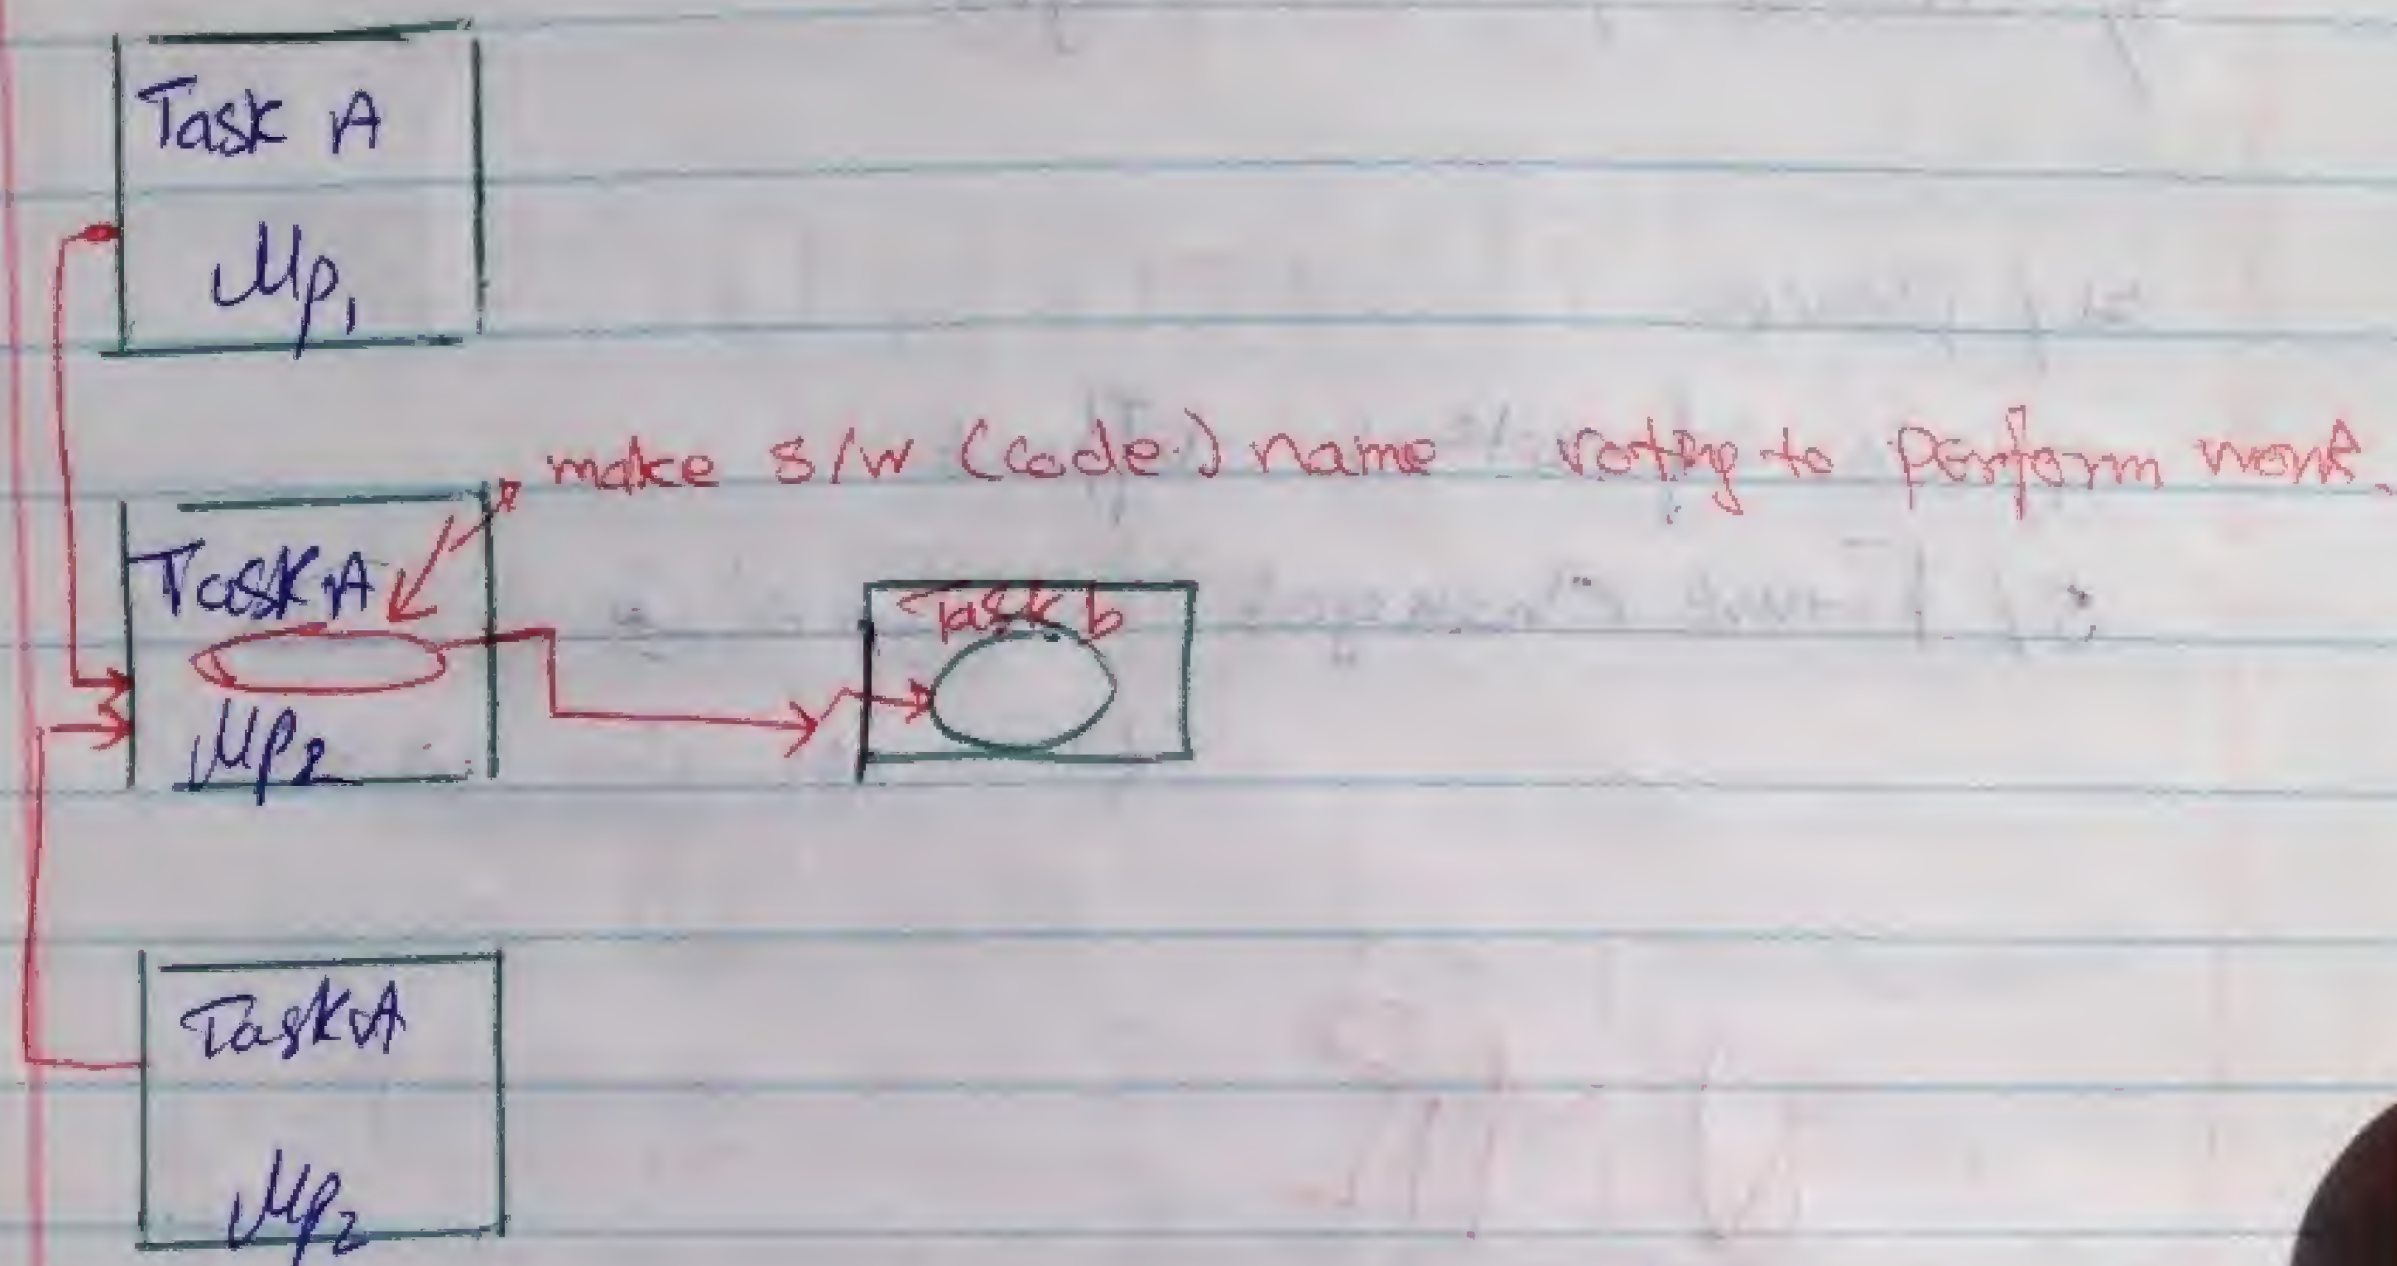 Task A
Mp1
make s/w (code) name voting to perform work.
Task A
Mp2
Task b
Task A
Mp2